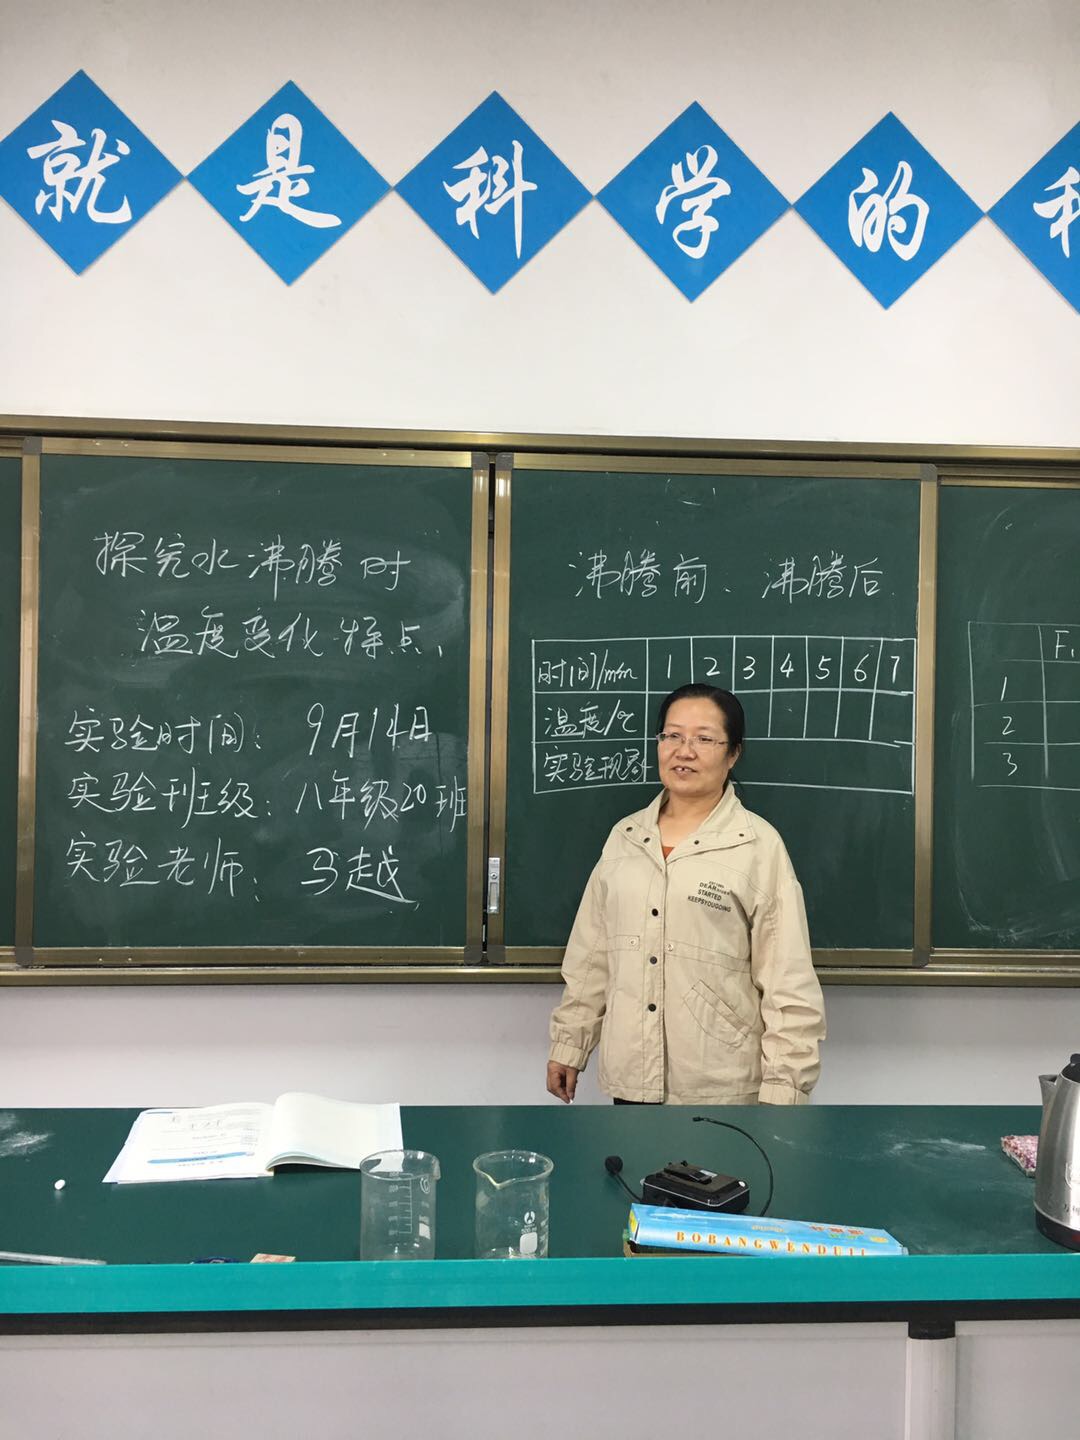 就是科学的
探究水沸腾时
温度变化特点
实验时间：9月14日
实验班级：八年级20班
实验老师：马越
沸腾前、沸腾后
时间/min 1 2 3 4 5 6 7
温度/℃
实验现象
F₁
1
2
3
DEAR
STARTED
KEEPSYOUGOING
BOBANGWENDUJI